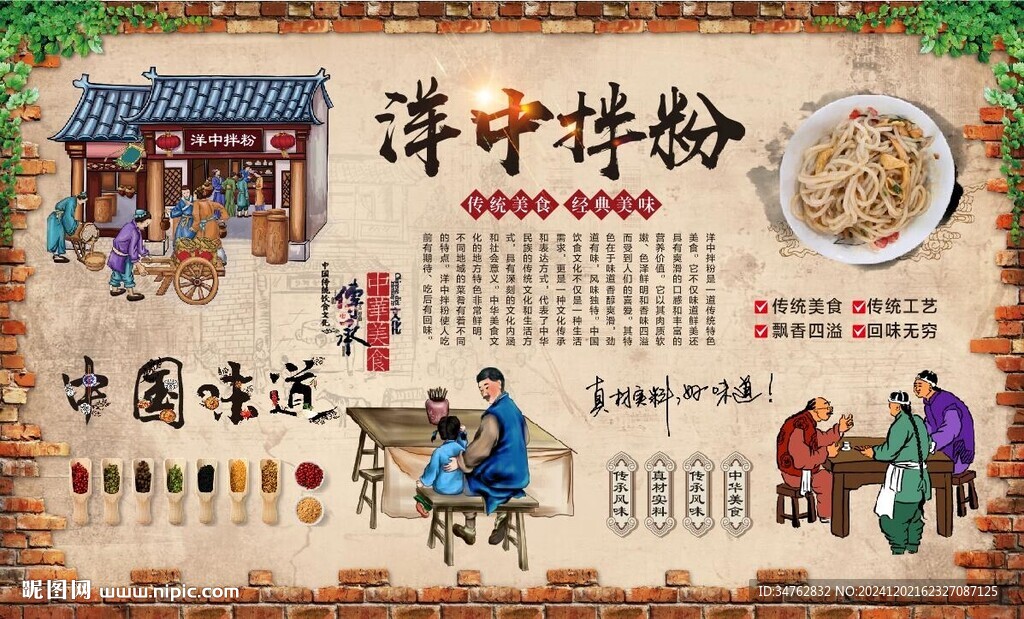 洋中拌粉
洋中拌粉
传统美食 经典美味
洋中拌粉是一道传统特色
美食。它不仅味道鲜美还
具有爽滑的口感和丰富的
营养价值。它以其肉质软
嫩、色泽鲜明和香味四溢
而受到人们的喜爱。其特
色在于味道香醇爽滑，劲
道有味，风味独特。中国
饮食文化不仅是一种生活
需求，更是一种文化传承
和表达方式，代表了中华
民族的传统文化和生活方
式，具有深刻的文化内涵
和社会意义。中华美食文
化的地方特色非常鲜明，
不同地域的菜肴有着不同
的特点。洋中拌粉使人吃
前有期待、吃后有回味。
文化
中華美食
傳承
中国传统饮食文化
传统美食
传统工艺
飘香四溢
回味无穷
中国味道
真材实料,好味道!
传承风味
真材实料
传承风味
中华美食
昵图网 www.nipic.com
ID:34762832 NO:20241202162327087125